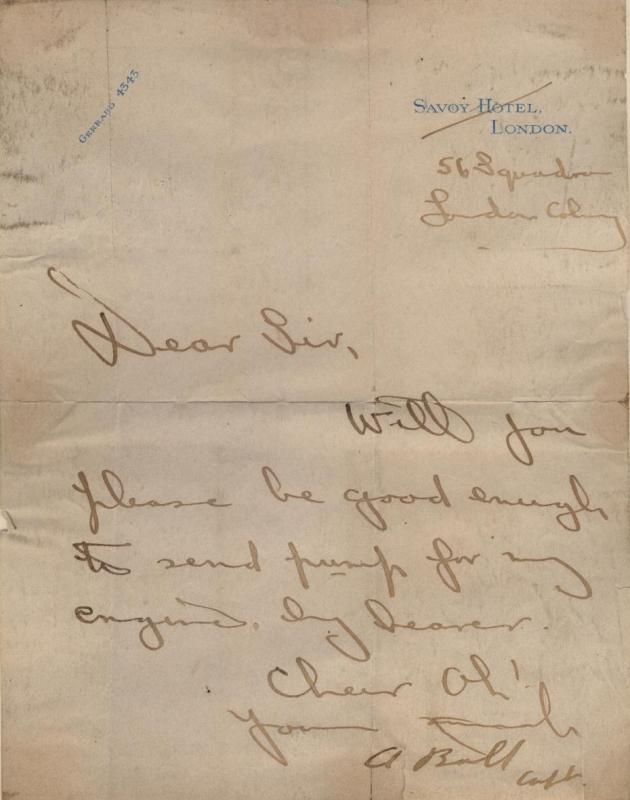 GERRARD 4343
SAVOY HOTEL,
LONDON.
56 Squadron
London Colney
Dear Sir,
Will you
please be good enough
to send pump for my
engine. by bearer.
Cheer Oh!
Yours
A Ball
Capt.